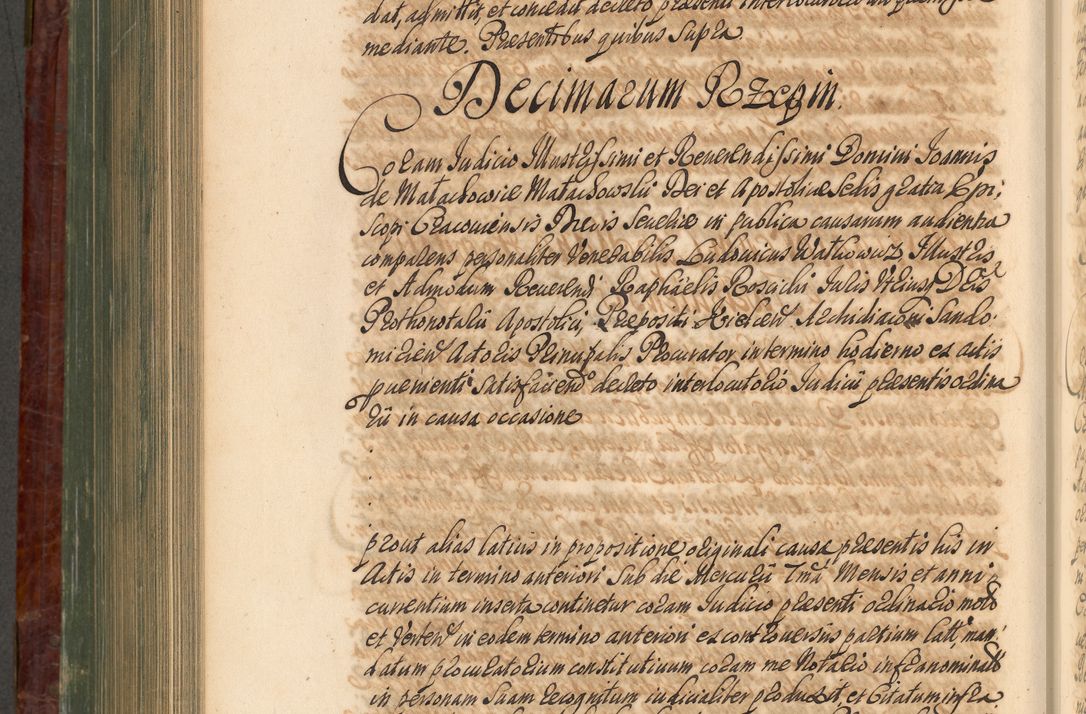 dat, admittit, et concedit decreto præsenti interlocutorio
mediante. Præsentibus quibus supra
Decimarum Rzepin.
Coram Judicio Illustrissimi et Reverendissimi Domini Joannis
de Małachowice Małachowski Dei et Apostolicæ Sedis gratia Epi„
scopi Cracoviensis Ducis Severiæ in publica causarum audientia
comparens personaliter Venerabilis Ludovicus Watkowicz Illustris
et Admodum Reverendi Raphaelis Roscicki Juris Utriusq Dris
Prothonotarii Apostolici, Præpositi Kielcen Archidiaconi Sando„
mirien Actoris Principalis Procurator in termino hodierno ex actis
satisfaciendo decreto interlocutorio Judicii præsentis ordina
rii in causa occasione
prout alias latius in propositione originali causæ præsentis his in
Actis in termino anteriori sub die Mercurii 7ma Mensis et anni
currentium inserta continetur coram Judicio præsenti ordinario moto
et verten in eodem termino anteriori ex controversiis partium latt, man„
datum procuratorium constitutivum coram me Notario infranominato
in personam suam recognitum judicialiter produxit, et Citatum infra